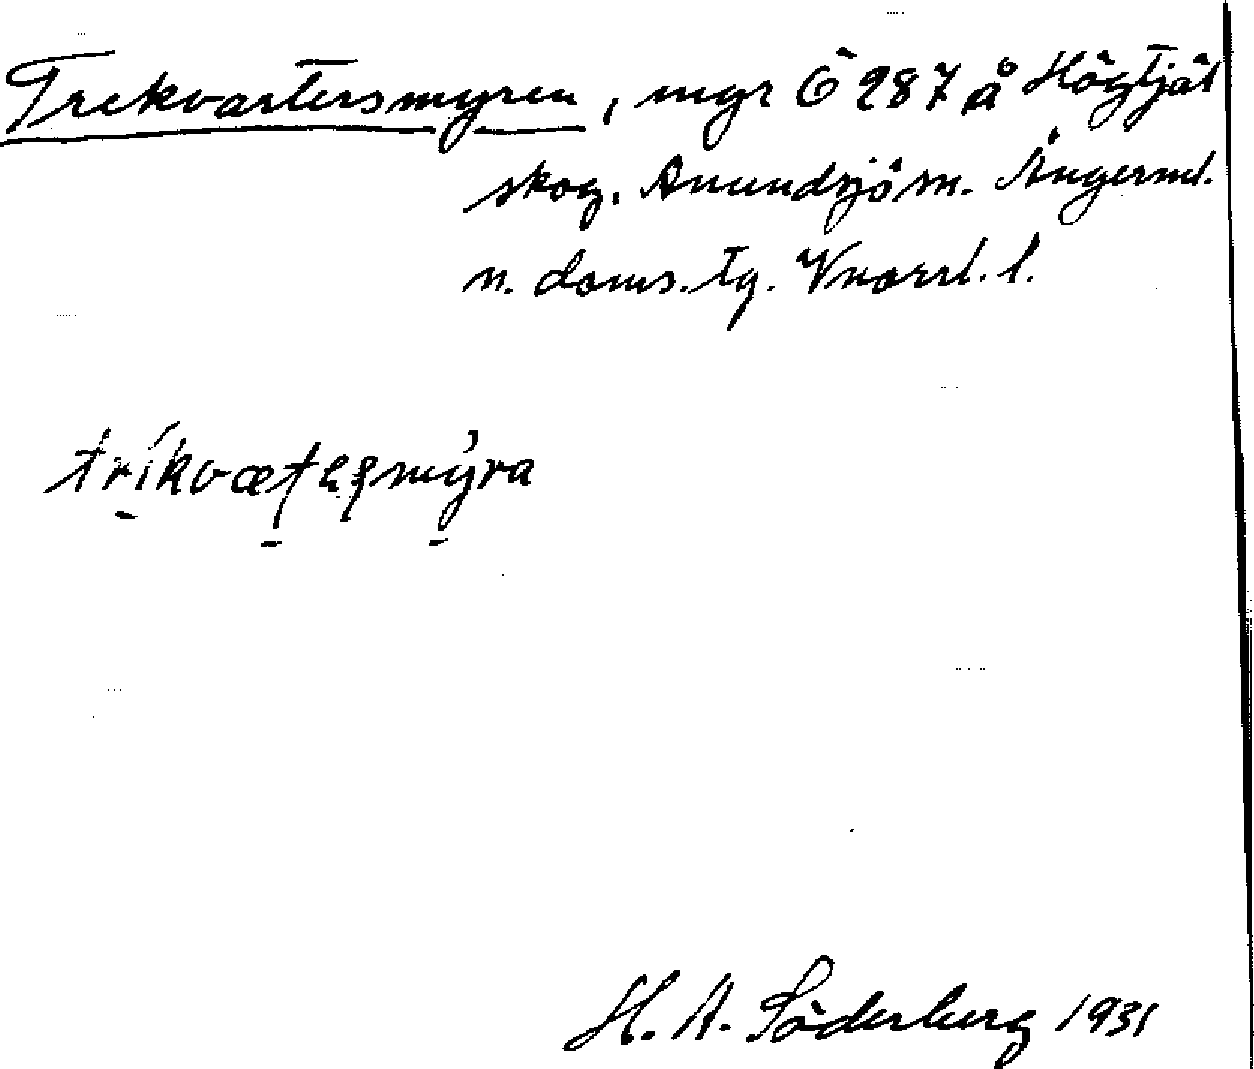 Trekvartersmyren, mgr Ö 287 å Högtjäl
skog. Anundsjö sn. Ångerml.
n. doms. tg. Vnorrl. l.
tríkvæteșmýra
H. A. Söderberg 1931